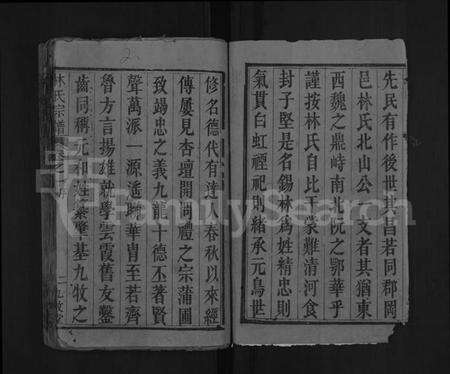 先民有作後世其昌若同郡岡
邑林氏北山公人文者其猶東
西魏之鼎峙南北阮之鄂華乎
謹按林氏自比干蒙難清河食
封子堅是名錫林為姓精忠則
氣貫白虹禋祀則緒承元鳥世
修名德代有達人春秋以來經
傳屢見杏壇開問禮之宗蒲圃
致竭忠之義九龍十德丕著賢
聲萬派一源遙 華胄至若齊
魯方言揚雄就學雲霞舊友鑿
齒同稱元和姓纂肇基九牧之
林氏宗譜
2
FamilySearch